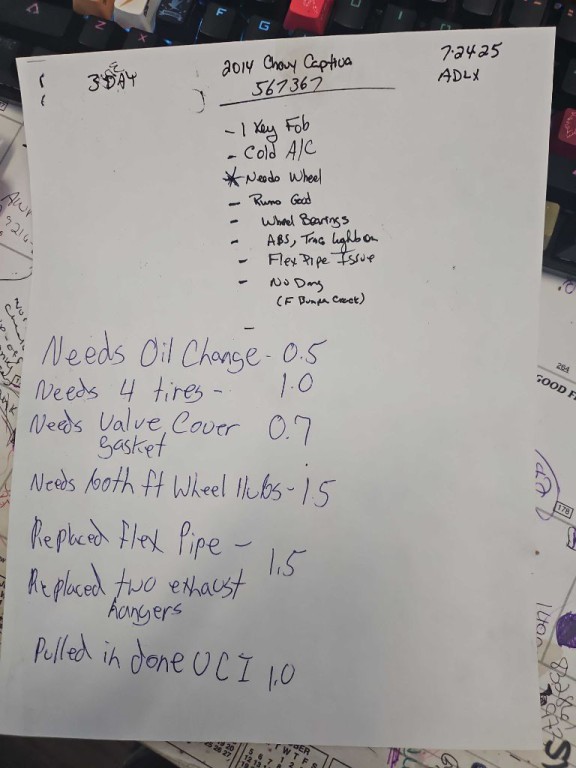 3 DAY
2014 Chevy Captiva
567367
7-24-25
ADLX
- 1 Key Fob
- Cold A/C
* Needs Wheel
- Runs Good
- Wheel Bearings
- ABS, Trac light on
- Flex Pipe Issue
- No Dmg
(F Bumper Crack)
-
Needs Oil Change - 0.5
Needs 4 tires - 1.0
Needs Valve Cover 0.7
gasket
Needs both ft Wheel Hubs - 1.5
Replaced flex Pipe -
1.5
Replaced two exhaust
hangers
Pulled in done UCI 1.0
GOOD
178